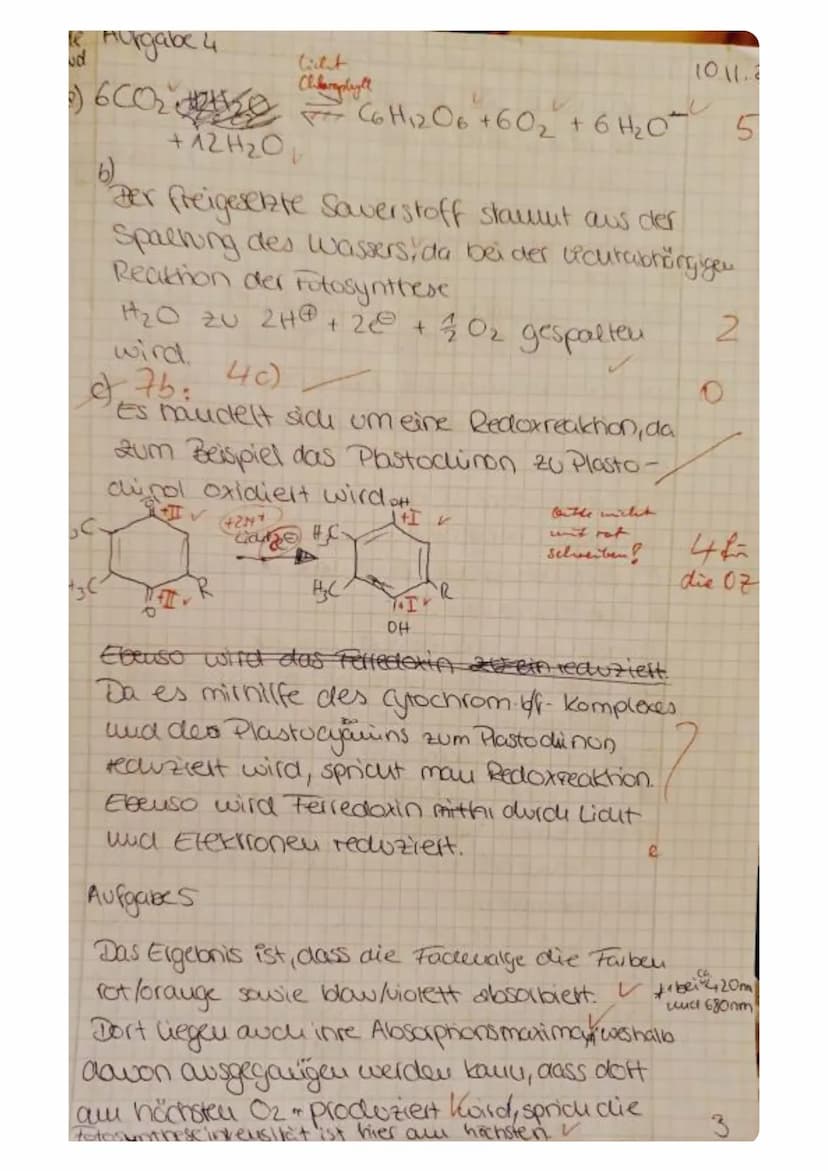 Aufgabe 4
10.11.
Licht
Chlorophyll
6CO₂ ⇌ C₆H₁₂O₆ + 6O₂ + 6H₂O
5
+ 12H₂O
b)
Der freigesetzte Sauerstoff stammt aus der
Spaltung des Wassers, da bei der lichtabhängigen
Reaktion der Fotosynthese
H₂O zu 2H⊕ + 2e⊖ + ½ O₂ gespalten
2
wird.
c) 7b: 4c)
0
Es handelt sich um eine Redoxreaktion, da
zum Beispiel das Plastochinon zu Plasto-
chinol oxidiert wird.
O +II
+2H⁺
Licht 2e⊖
OH
+I
H₃C
H₃C
R
+II
O
H₃C
R
+I
OH
bitte nicht
mit rot
schreiben!
4 für
die OZ
Ebenso wird das Ferredoxin zu ein reduziert.
Da es mithilfe des Cytochrom-b/f-Komplexes
und des Plastocyanins zum Plastochinon
reduziert wird, spricht man Redoxreaktion.
?
Ebenso wird Ferredoxin durch Licht
und Elektronen reduziert.
Aufgabe 5
Das Ergebnis ist, dass die Fadenalge die Farben
rot/orange sowie blau/violett absorbiert.
*bei ca. 420nm
und 680nm
Dort liegen auch ihre Absorptionsmaxima, weshalb
davon ausgegangen werden kann, dass dort
am höchsten O₂ produziert wird, sprich die
Fotosyntheseintensität ist hier am höchsten.
3